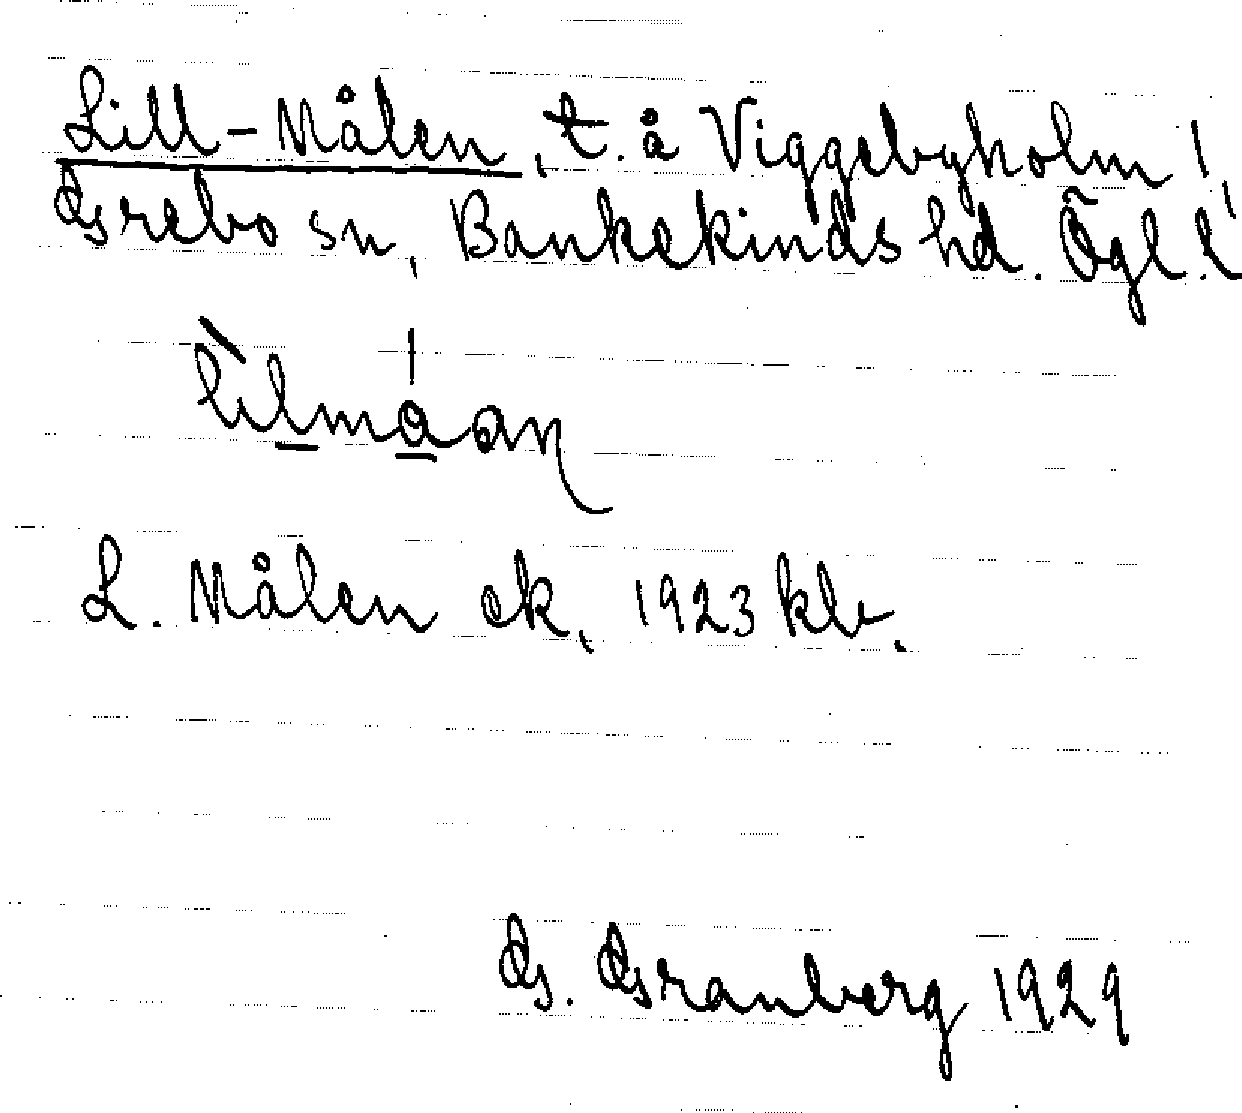 Lill-Målen, t. å Viggebyholm!,
Grebo sn, Bankekinds hd. Ögl.!
L. Målen ek, 1923 klr.
G. Granberg 1929